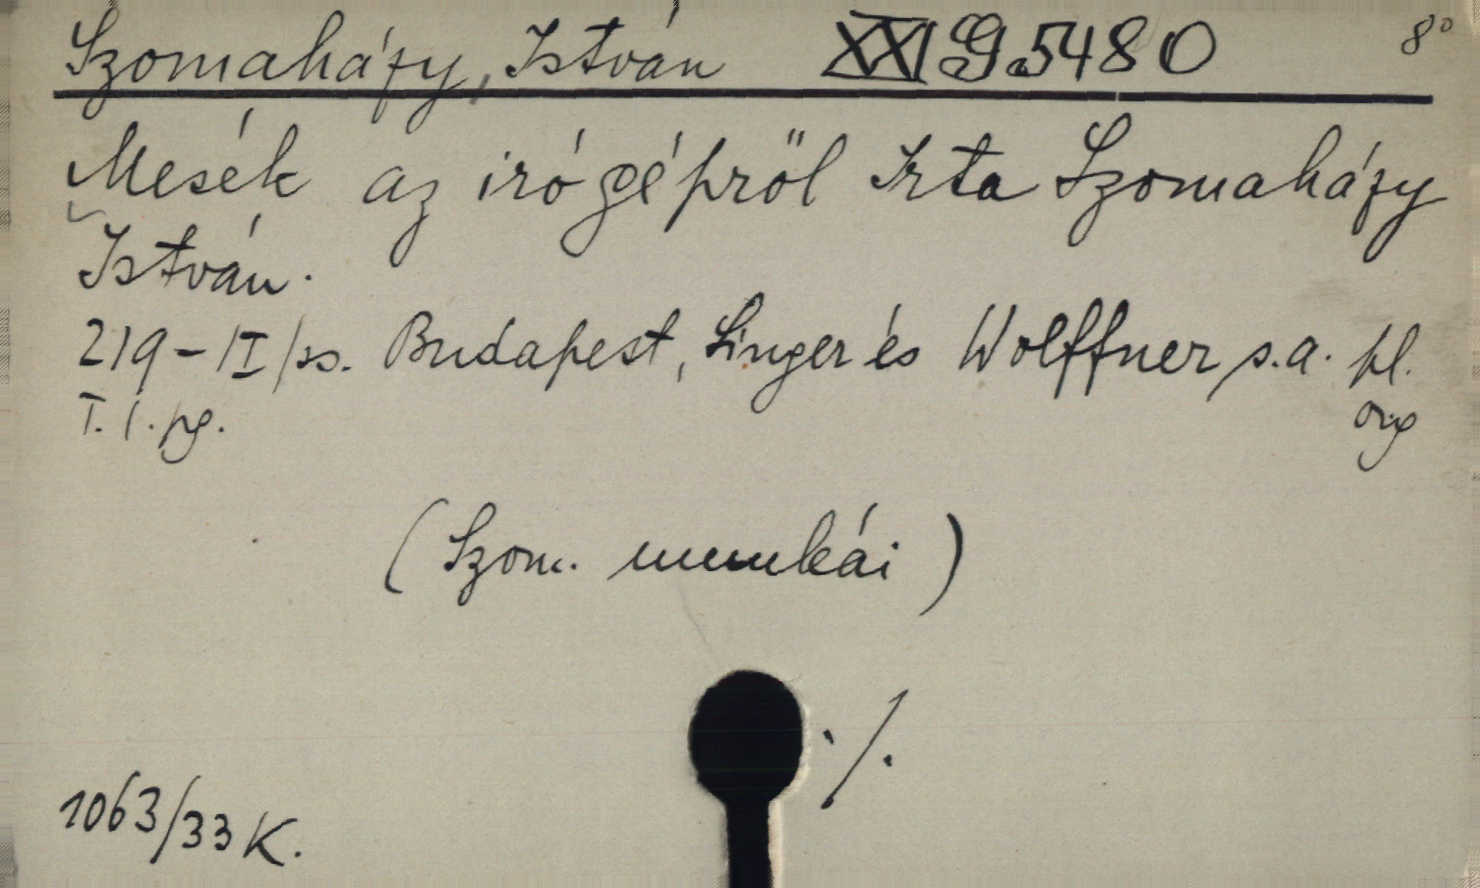 Szomaházy, István XXI G 5480 8°
Mesék az irógépről Irta Szomaházy
István.
219-|I|ss. Budapest, Singer és Wolffner s.a. pl.
T. 1. pg. org
(Szom. munkái)
./.
1063/33 K.